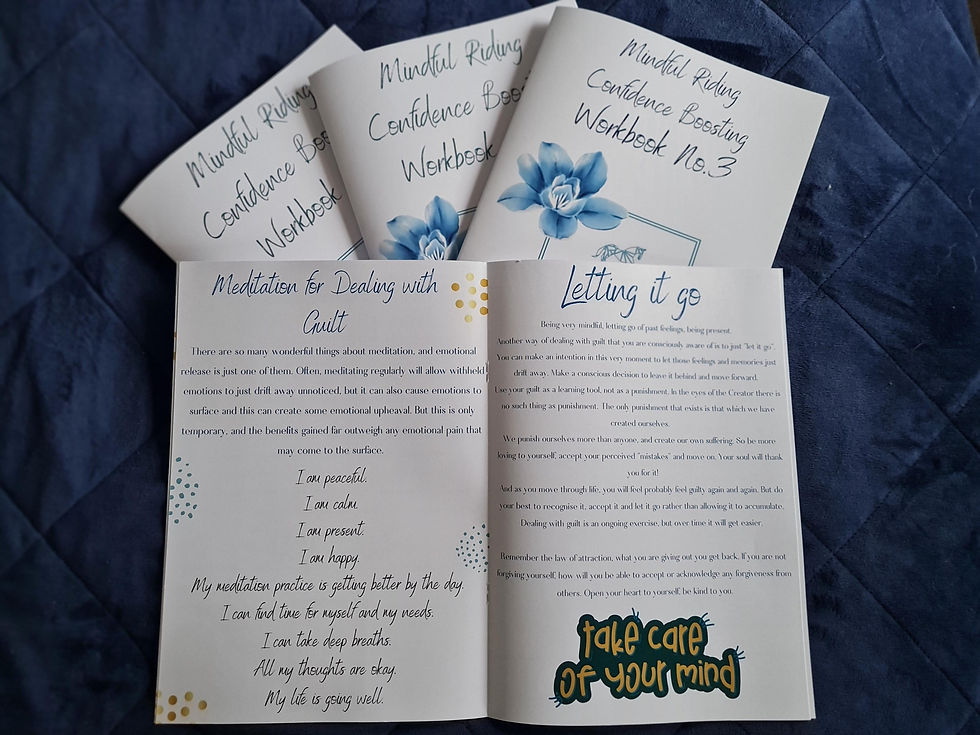 Mindful Riding
Confidence Boo
Workbook
Mindful Riding
Confidence Boos
Workbook
Mindful Riding
Confidence Boosting
Workbook No.3
Meditation for Dealing with
Guilt
There are so many wonderful things about meditation, and emotional
release is just one of them. Often, meditating regularly will allow withheld
emotions to just drift away unnoticed, but it can also cause emotions to
surface and this can create some emotional upheaval. But this is only
temporary, and the benefits gained far outweigh any emotional pain that
may come to the surface.
I am peaceful.
I am calm.
I am present.
I am happy.
My meditation practice is getting better by the day.
I can find time for myself and my needs.
I can take deep breaths.
All my thoughts are okay.
My life is going well.
Letting it go
Being very mindful, letting go of past feelings, being present.
Another way of dealing with guilt that you are consciously aware of is to just "let it go".
You can make an intention in this very moment to let those feelings and memories just
drift away. Make a conscious decision to leave it behind and move forward.
Use your guilt as a learning tool, not as a punishment. In the eyes of the Creator there is
no such thing as punishment. The only punishment that exists is that which we have
created ourselves.
We punish ourselves more than anyone, and create our own suffering. So be more
loving to yourself, accept your perceived "mistakes" and move on. Your soul will thank
you for it!
And as you move through life, you will feel probably feel guilty again and again. But do
your best to recognise it, accept it and let it go rather than allowing it to accumulate.
Dealing with guilt is an ongoing exercise, but over time it will get easier.
Remember the law of attraction, what you are giving out you get back. If you are not
forgiving yourself, how will you be able to accept or acknowledge any forgiveness from
others. Open your heart to yourself, be kind to you.
take care
of your mind